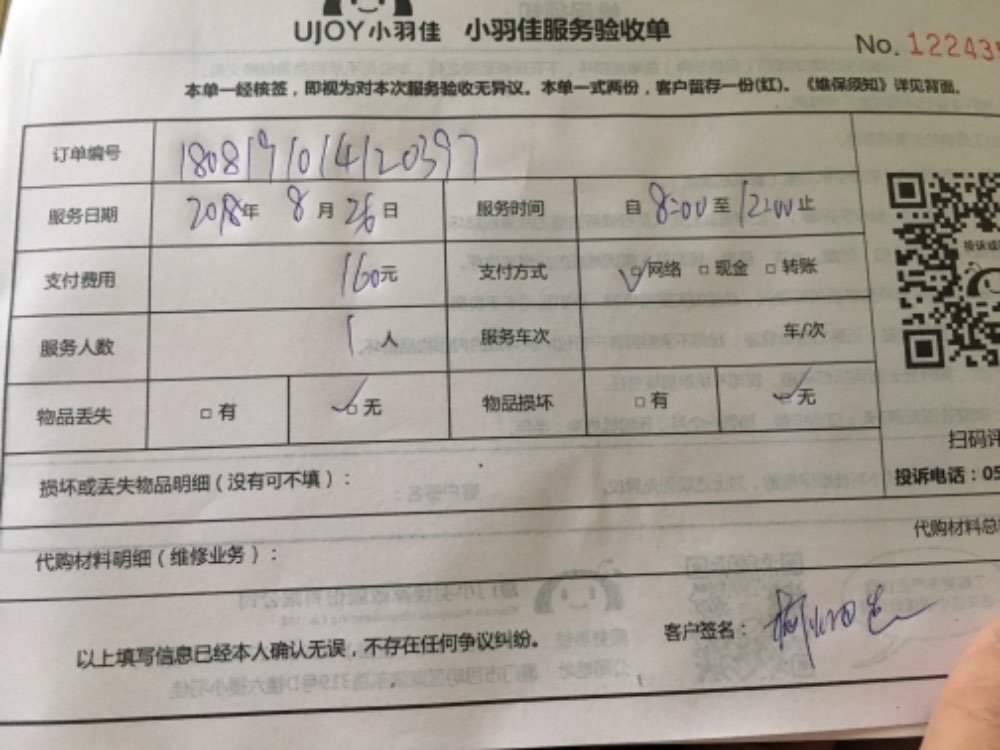 UJOY小羽佳 小羽佳服务验收单
No. 122435
本单一经核签，即视为对本次服务验收无异议。本单一式两份，客户留存一份(红)。《维保须知》详见背面。
订单编号 1808191014120397
服务日期 2018年 8 月 26 日 服务时间 自 8:00 至 12:00 止
支付费用 160元 支付方式 ✓□网络 □现金 □转账
服务人数 1 人 服务车次 车/次
物品丢失 □有 ✓□无 物品损坏 □有 ✓□无
扫码评
损坏或丢失物品明细（没有可不填）： 投诉电话：05
代购材料明细（维修业务）： 代购材料总
以上填写信息已经本人确认无误，不存在任何争议纠纷。 客户签名：